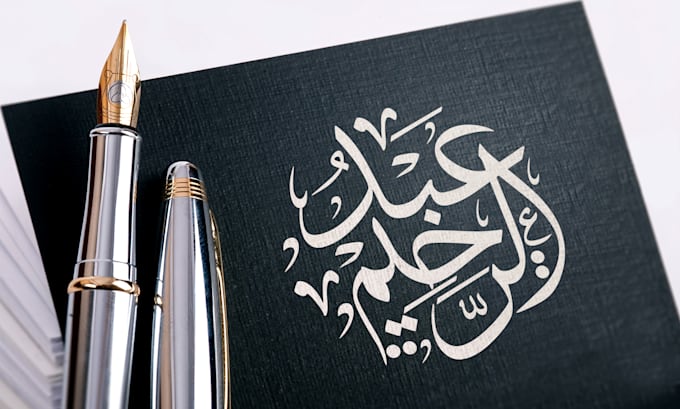 عبد الرَّحيم